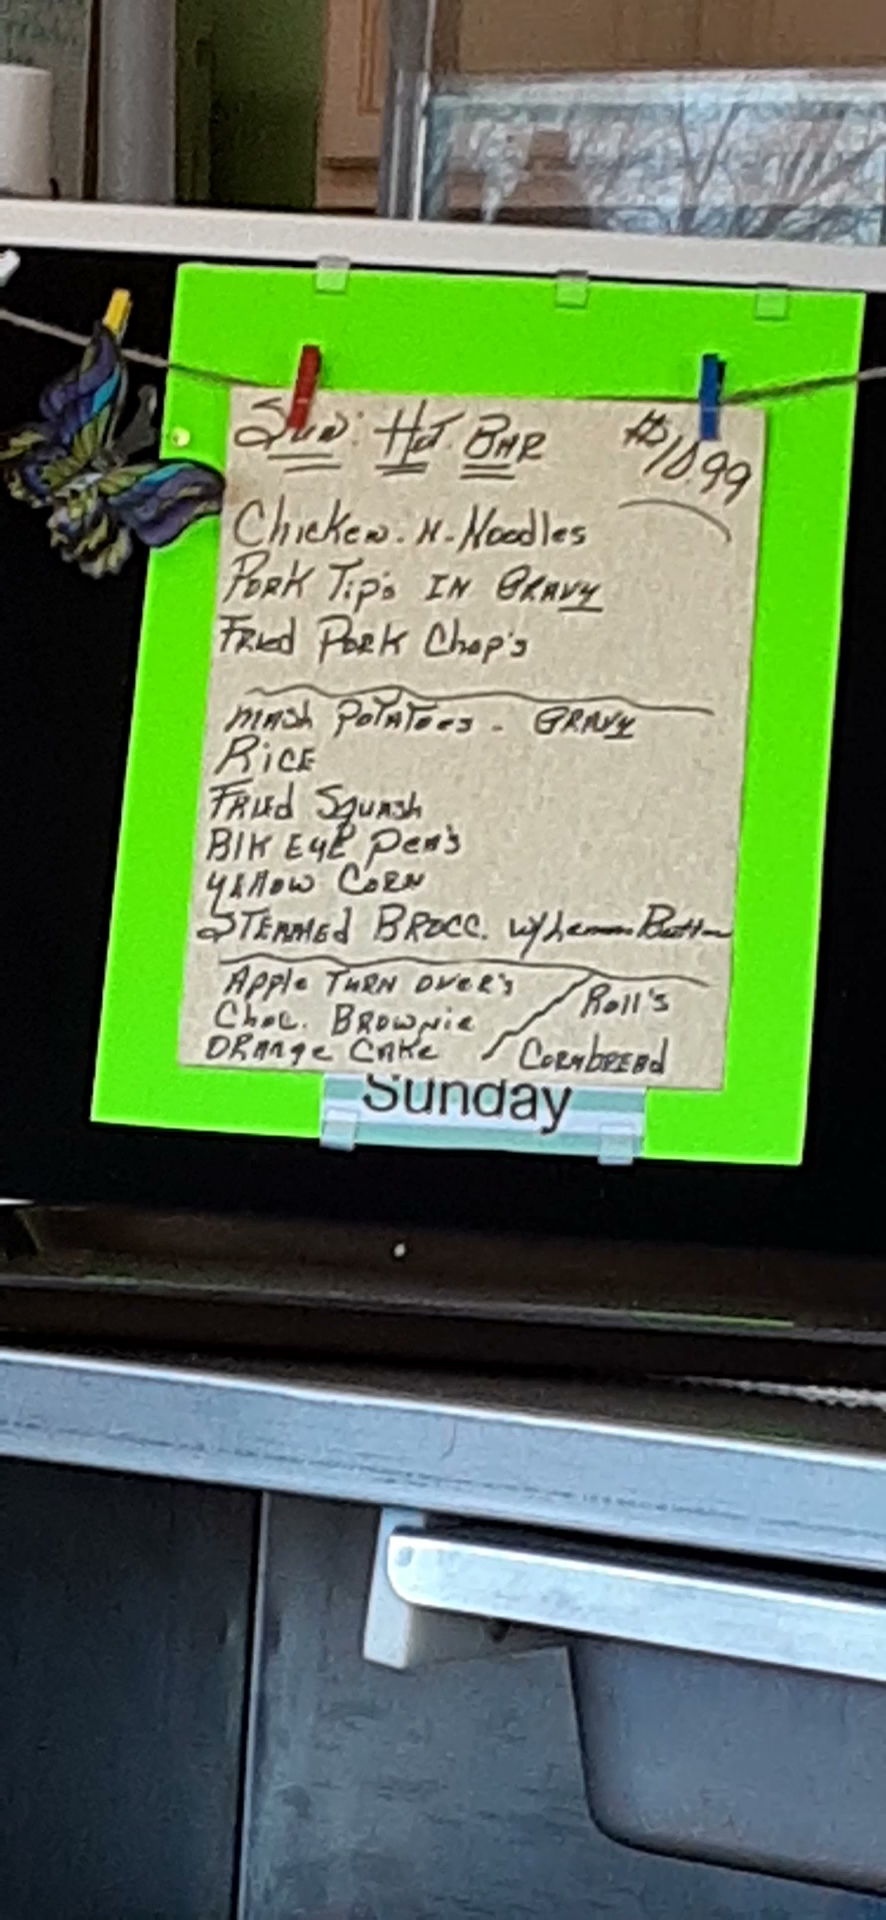 Sun: Hot Bar $10.99
Chicken-N-Noodles
Pork Tip's IN Gravy
Fried Pork Chop's
Mash Potatoes - Gravy
Rice
Fried Squash
Blk Eye Pea's
Yellow Corn
Steamed Brocc. w/Lemon Butter
Apple Turn over's
Roll's
Choc. Brownie
Orange Cake
Cornbread
Sunday